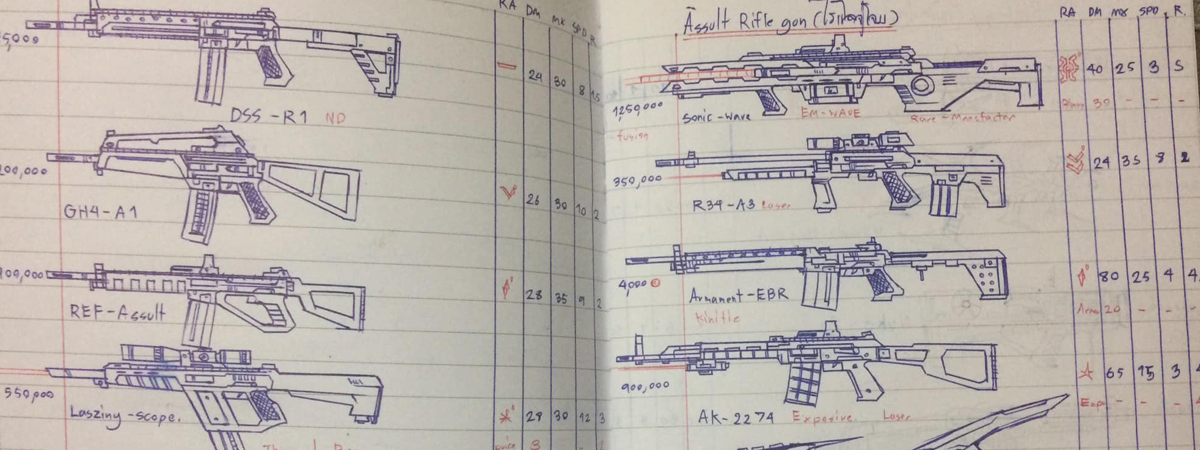 RA DM MX SPD R.
DSS-R1 ND
24 30 8
GH4-A1
26 30 10 2
REF-Assult
28 35 9 2
550,000
Lasziny-scope.
29 30 12 3
Assult Rifle gon
RA DM MX SPD R.
1250,000
fusion
Sonic-wave EM-WAVE
40 25 3 5
30 - - -
350,000
R34-A3 Laser
24 35 8 2
4,000
Armament-EBR
80 25 4 4
20 - - -
900,000
AK-2274 Exposive Laser
65 15 3
Exp. - - -